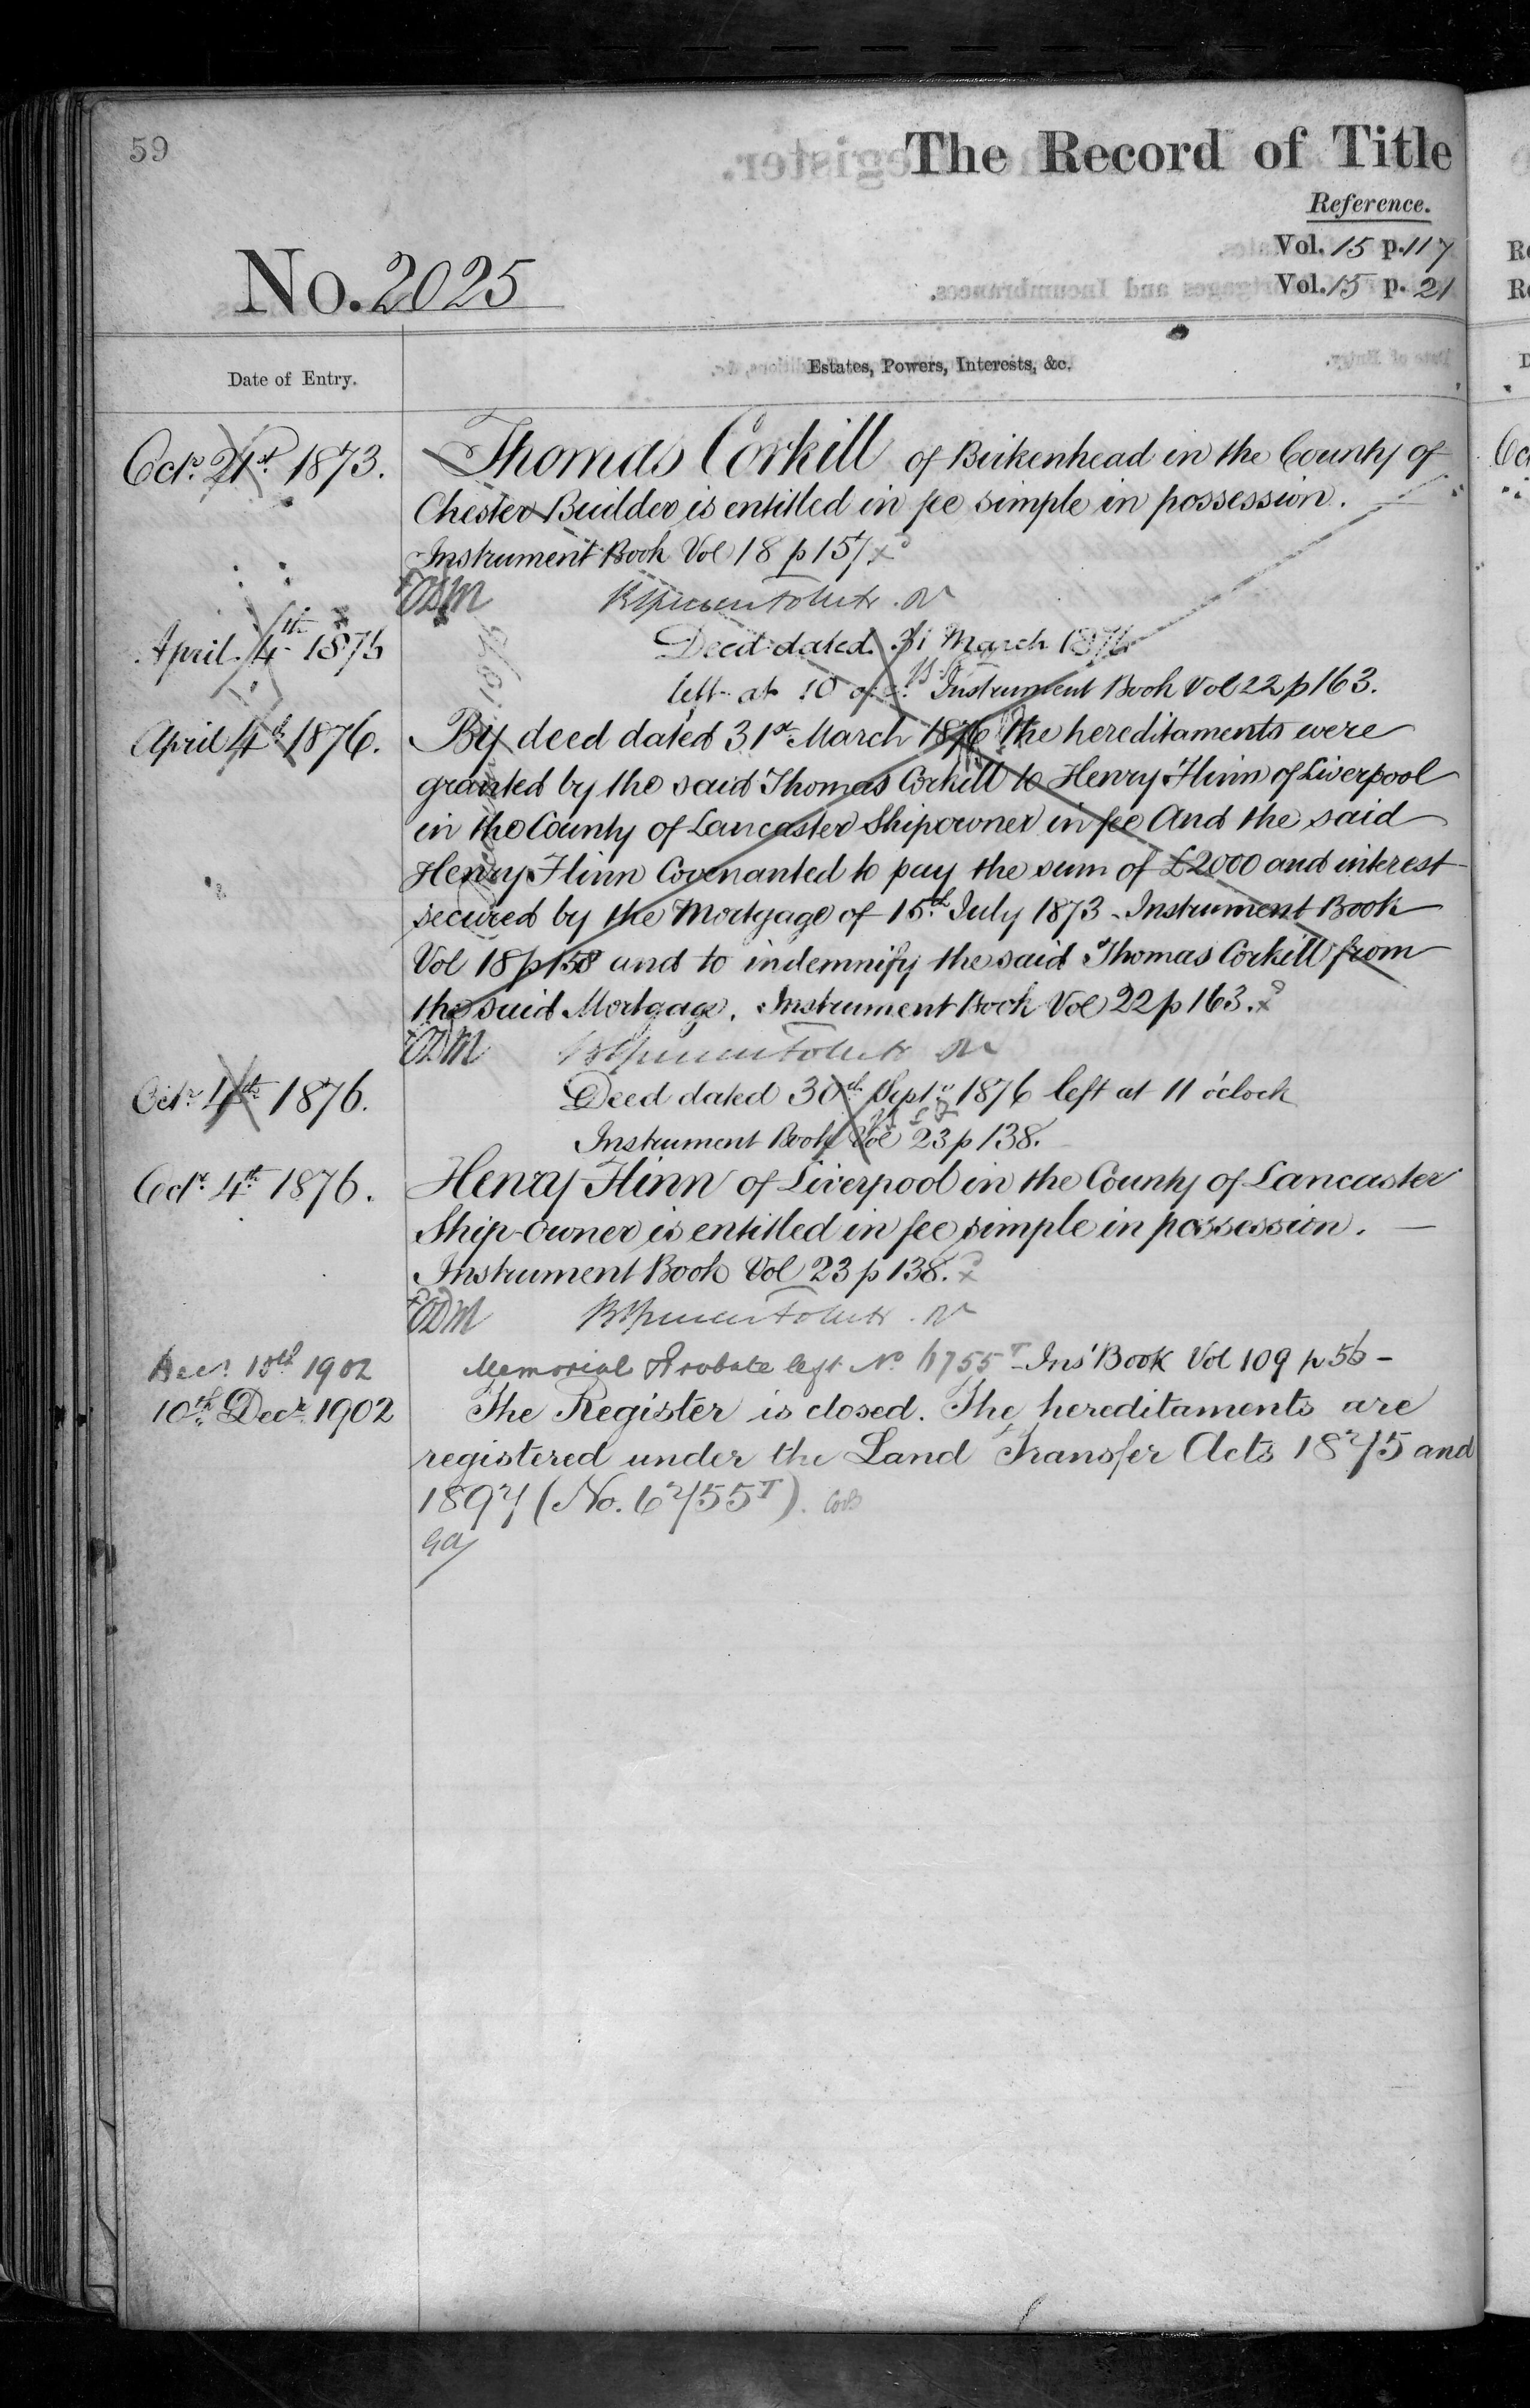 59
The Record of Title
Reference.
Vol. 15 p. 117
No. 2025
Vol. 15 p. 21
Date of Entry.
Estates, Powers, Interests, &c.
Octr. 21st. 1873.
Thomas Corkill of Birkenhead in the County of
Chester Builder is entitled in fee simple in possession.
Instrument Book Vol 18 p 157
April 4th 1876
Deed dated 31 March 1876
left at 10 o'c. Instrument Book Vol 22 p 163.
April 4th 1876.
By deed dated 31st March 1876 the hereditaments were
granted by the said Thomas Corkill to Henry Flinn of Liverpool
in the County of Lancaster Shipowner in fee And the said
Henry Flinn Covenanted to pay the sum of £2000 and interest
secured by the Mortgage of 15th July 1873 - Instrument Book
Vol 18 p 158 and to indemnify the said Thomas Corkill from
the said Mortgage. Instrument Book Vol 22 p 163.
Octr. 4th 1876.
Deed dated 30th Septr. 1876 left at 11 o'clock
Instrument Book Vol 23 p 138.
Octr. 4th 1876.
Henry Flinn of Liverpool in the County of Lancaster
Ship-owner is entitled in fee simple in possession. —
Instrument Book Vol 23 p 138.
Decr. 10th 1902
Memorial & Probate left No 6755T - Ins' Book Vol 109 p 56 -
10th. Decr. 1902
The Register is closed. The hereditaments are
registered under the Land Transfer Acts 1875 and
1897 (No. 6755T).